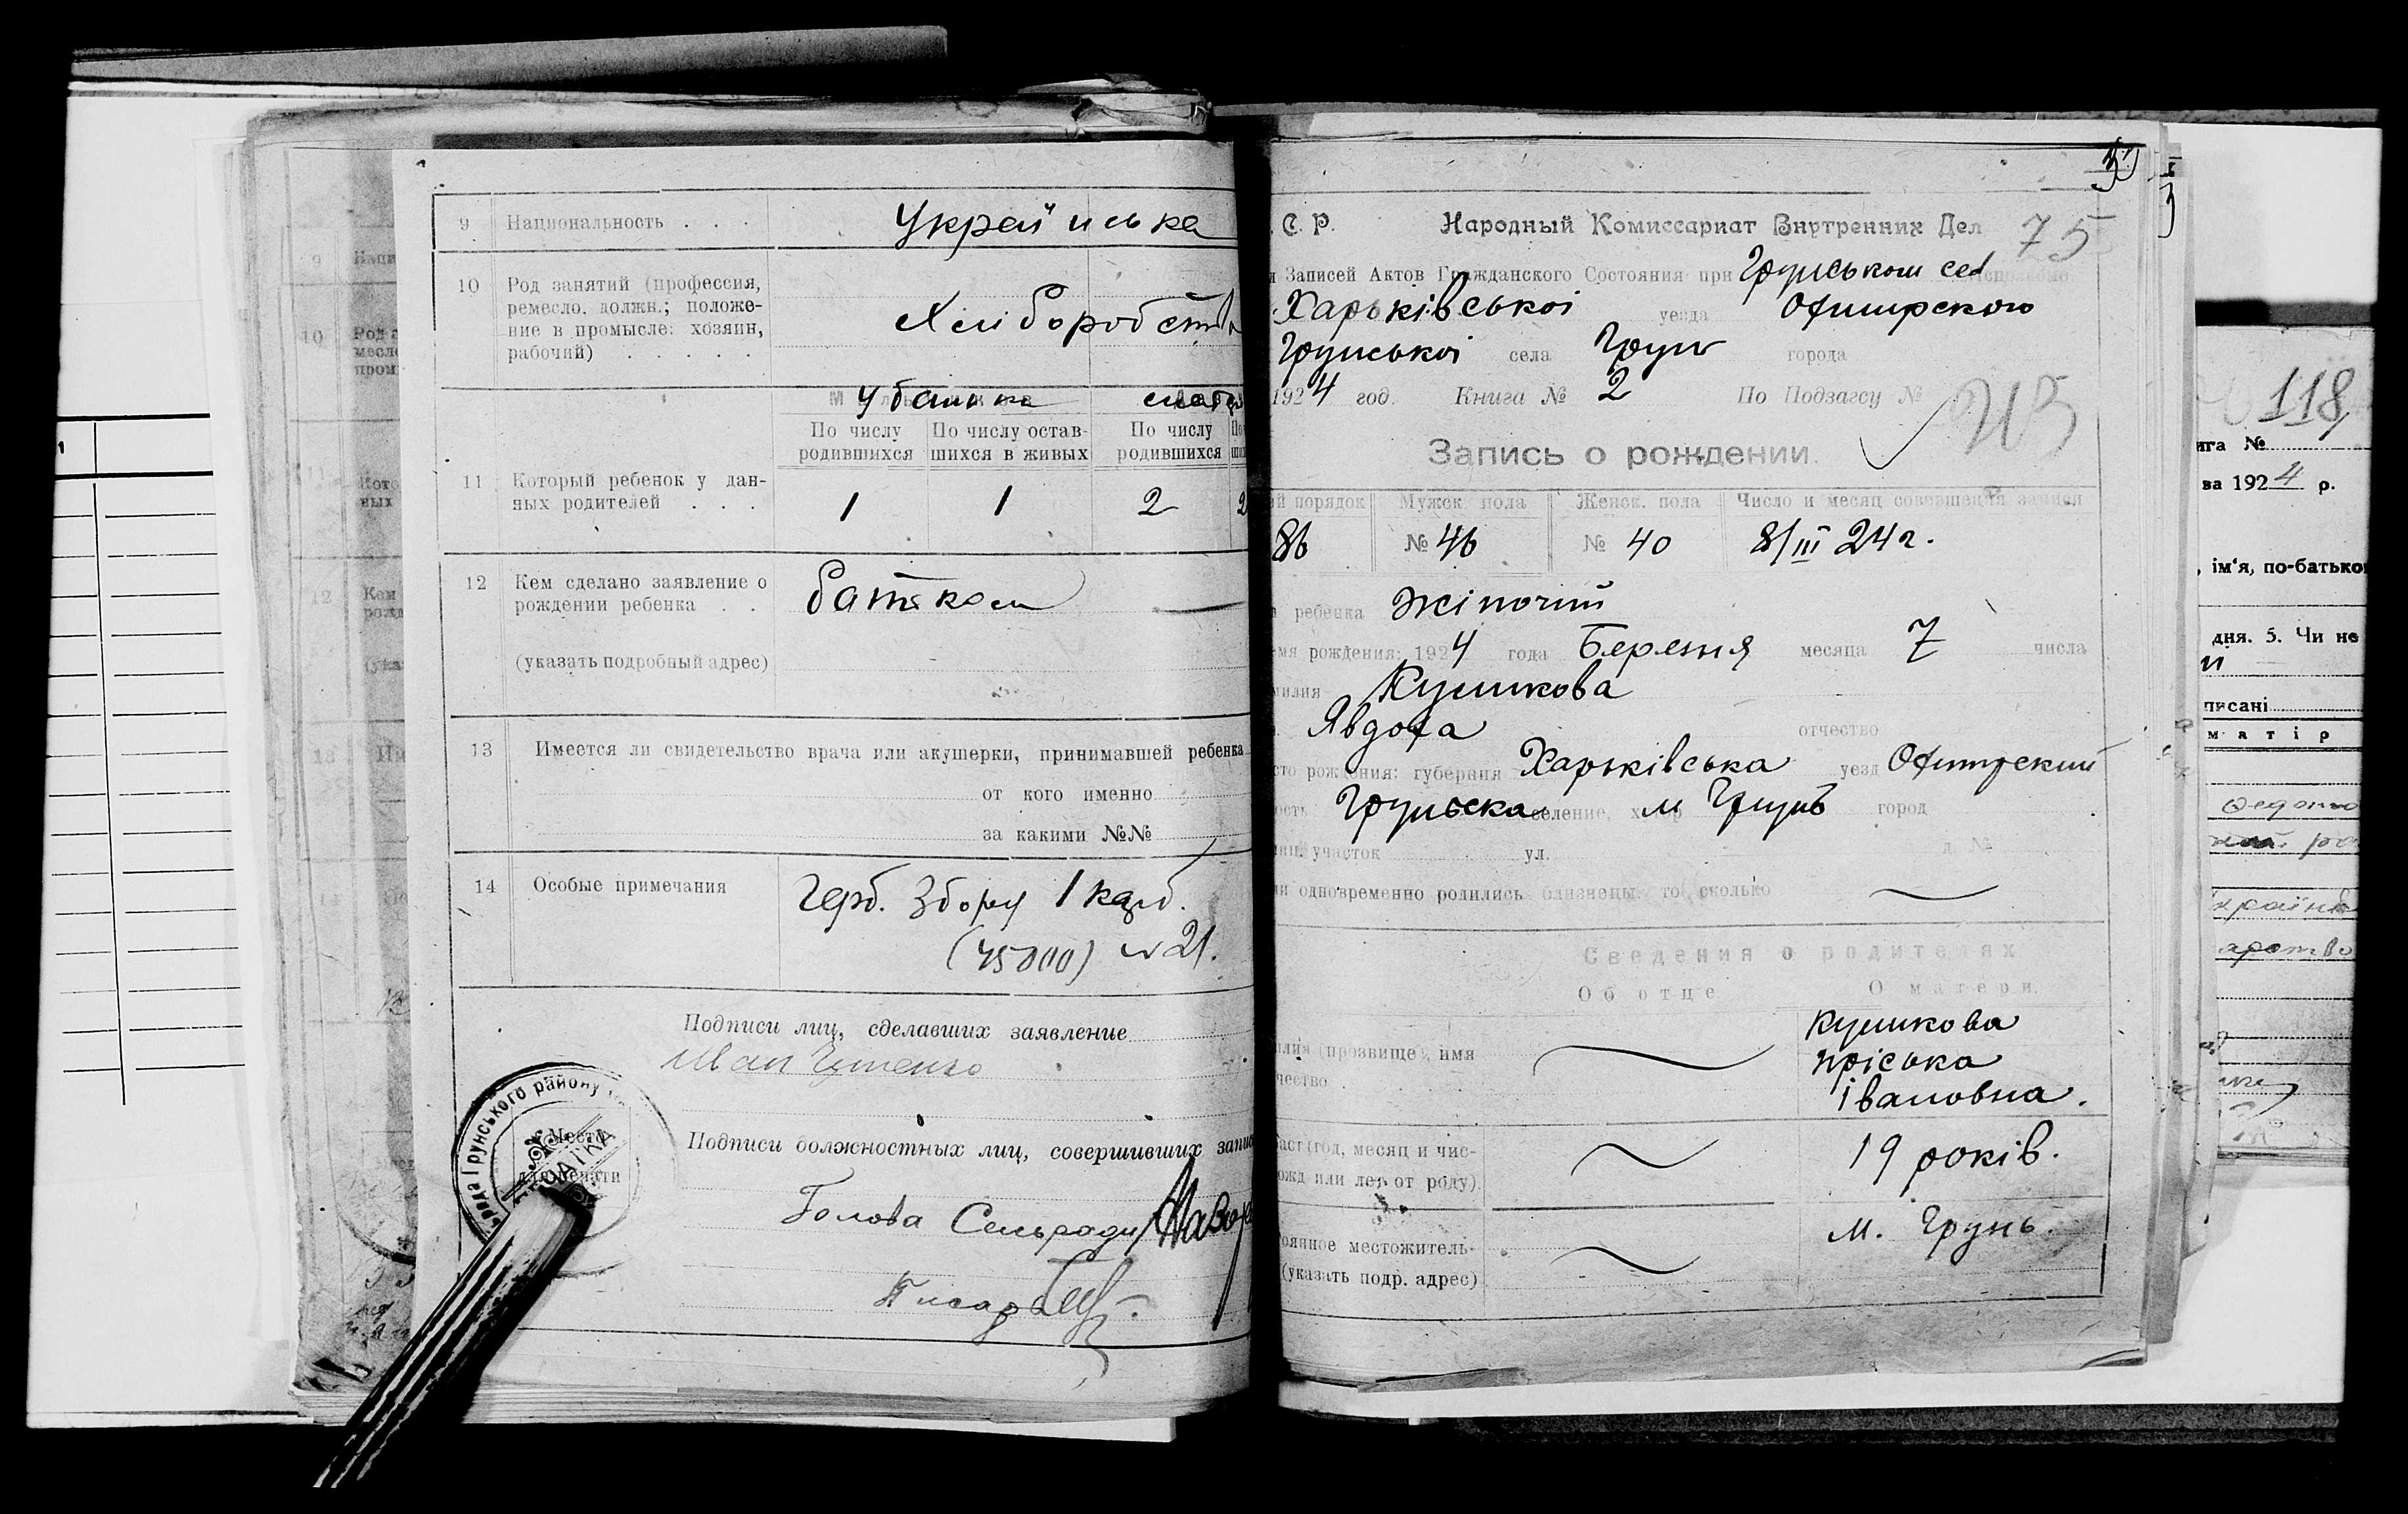 9 Национальность . . . Украӥнська
10 Род занятий (профессия,
ремесло, должн.; положе-
ние в промысле: хозяин,
рабочий) . . . . .
Хліборобств
У батька
По числу родившихся
По числу остав- шихся в живых
По числу родившихся
11 Который ребенок у дан-
ных родителей . . .
1 1 2 2
12 Кем сделано заявление о
рождении ребенка . .
батьком
(указать подробный адрес)
13 Имеется ли свидетельство врача или акушерки, принимавшей ребенка
от кого именно
за какими №№
14 Особые примечания
Герб. Збору 1 карб.
(45000) 21.
Подписи лиц, сделавших заявление
Иван
Подписи должностных лиц, совершивших запис
Голова Сельради
Писарь
Грунського району
Место
для печати
С. Р. Народный Комиссариат Внутренних Дел 75
Записей Актов Гражданского Состояния при Грунськом сел
Харьківськоі уезда Охтирского
Грунськоі села Грунь города
1924 год. Книга № 2 По Подзагсу №
Запись о рождении.
й порядок Мужск. пола Женск. пола Число и месяц совершения записи
86 № 46 № 40 8/III 24 г.
ребенка Жіночий
мя рождения: 1924 года Березня месяца 7 числа
милия Кушкова
Явдоха отчество
сто рождения: губерния Харьківська уезд Охтирский
ость Груньска селение, хутор м Грунь город
участок ул. д №
и одновременно родились близнецы, то сколько
Сведения о родителях
Об отце О матери.
илия (прозвище), имя
чество .
Кушкова
Пріська
Івановна.
раст (год, месяц и чис-
ожд или лет от роду)
19 років.
оянное местожитель-
(указать подр. адрес)
м. Грунь.
118
ига №
ва 1924 р.
, ім'я, по-батько
дня. 5. Чи не
писані
матір